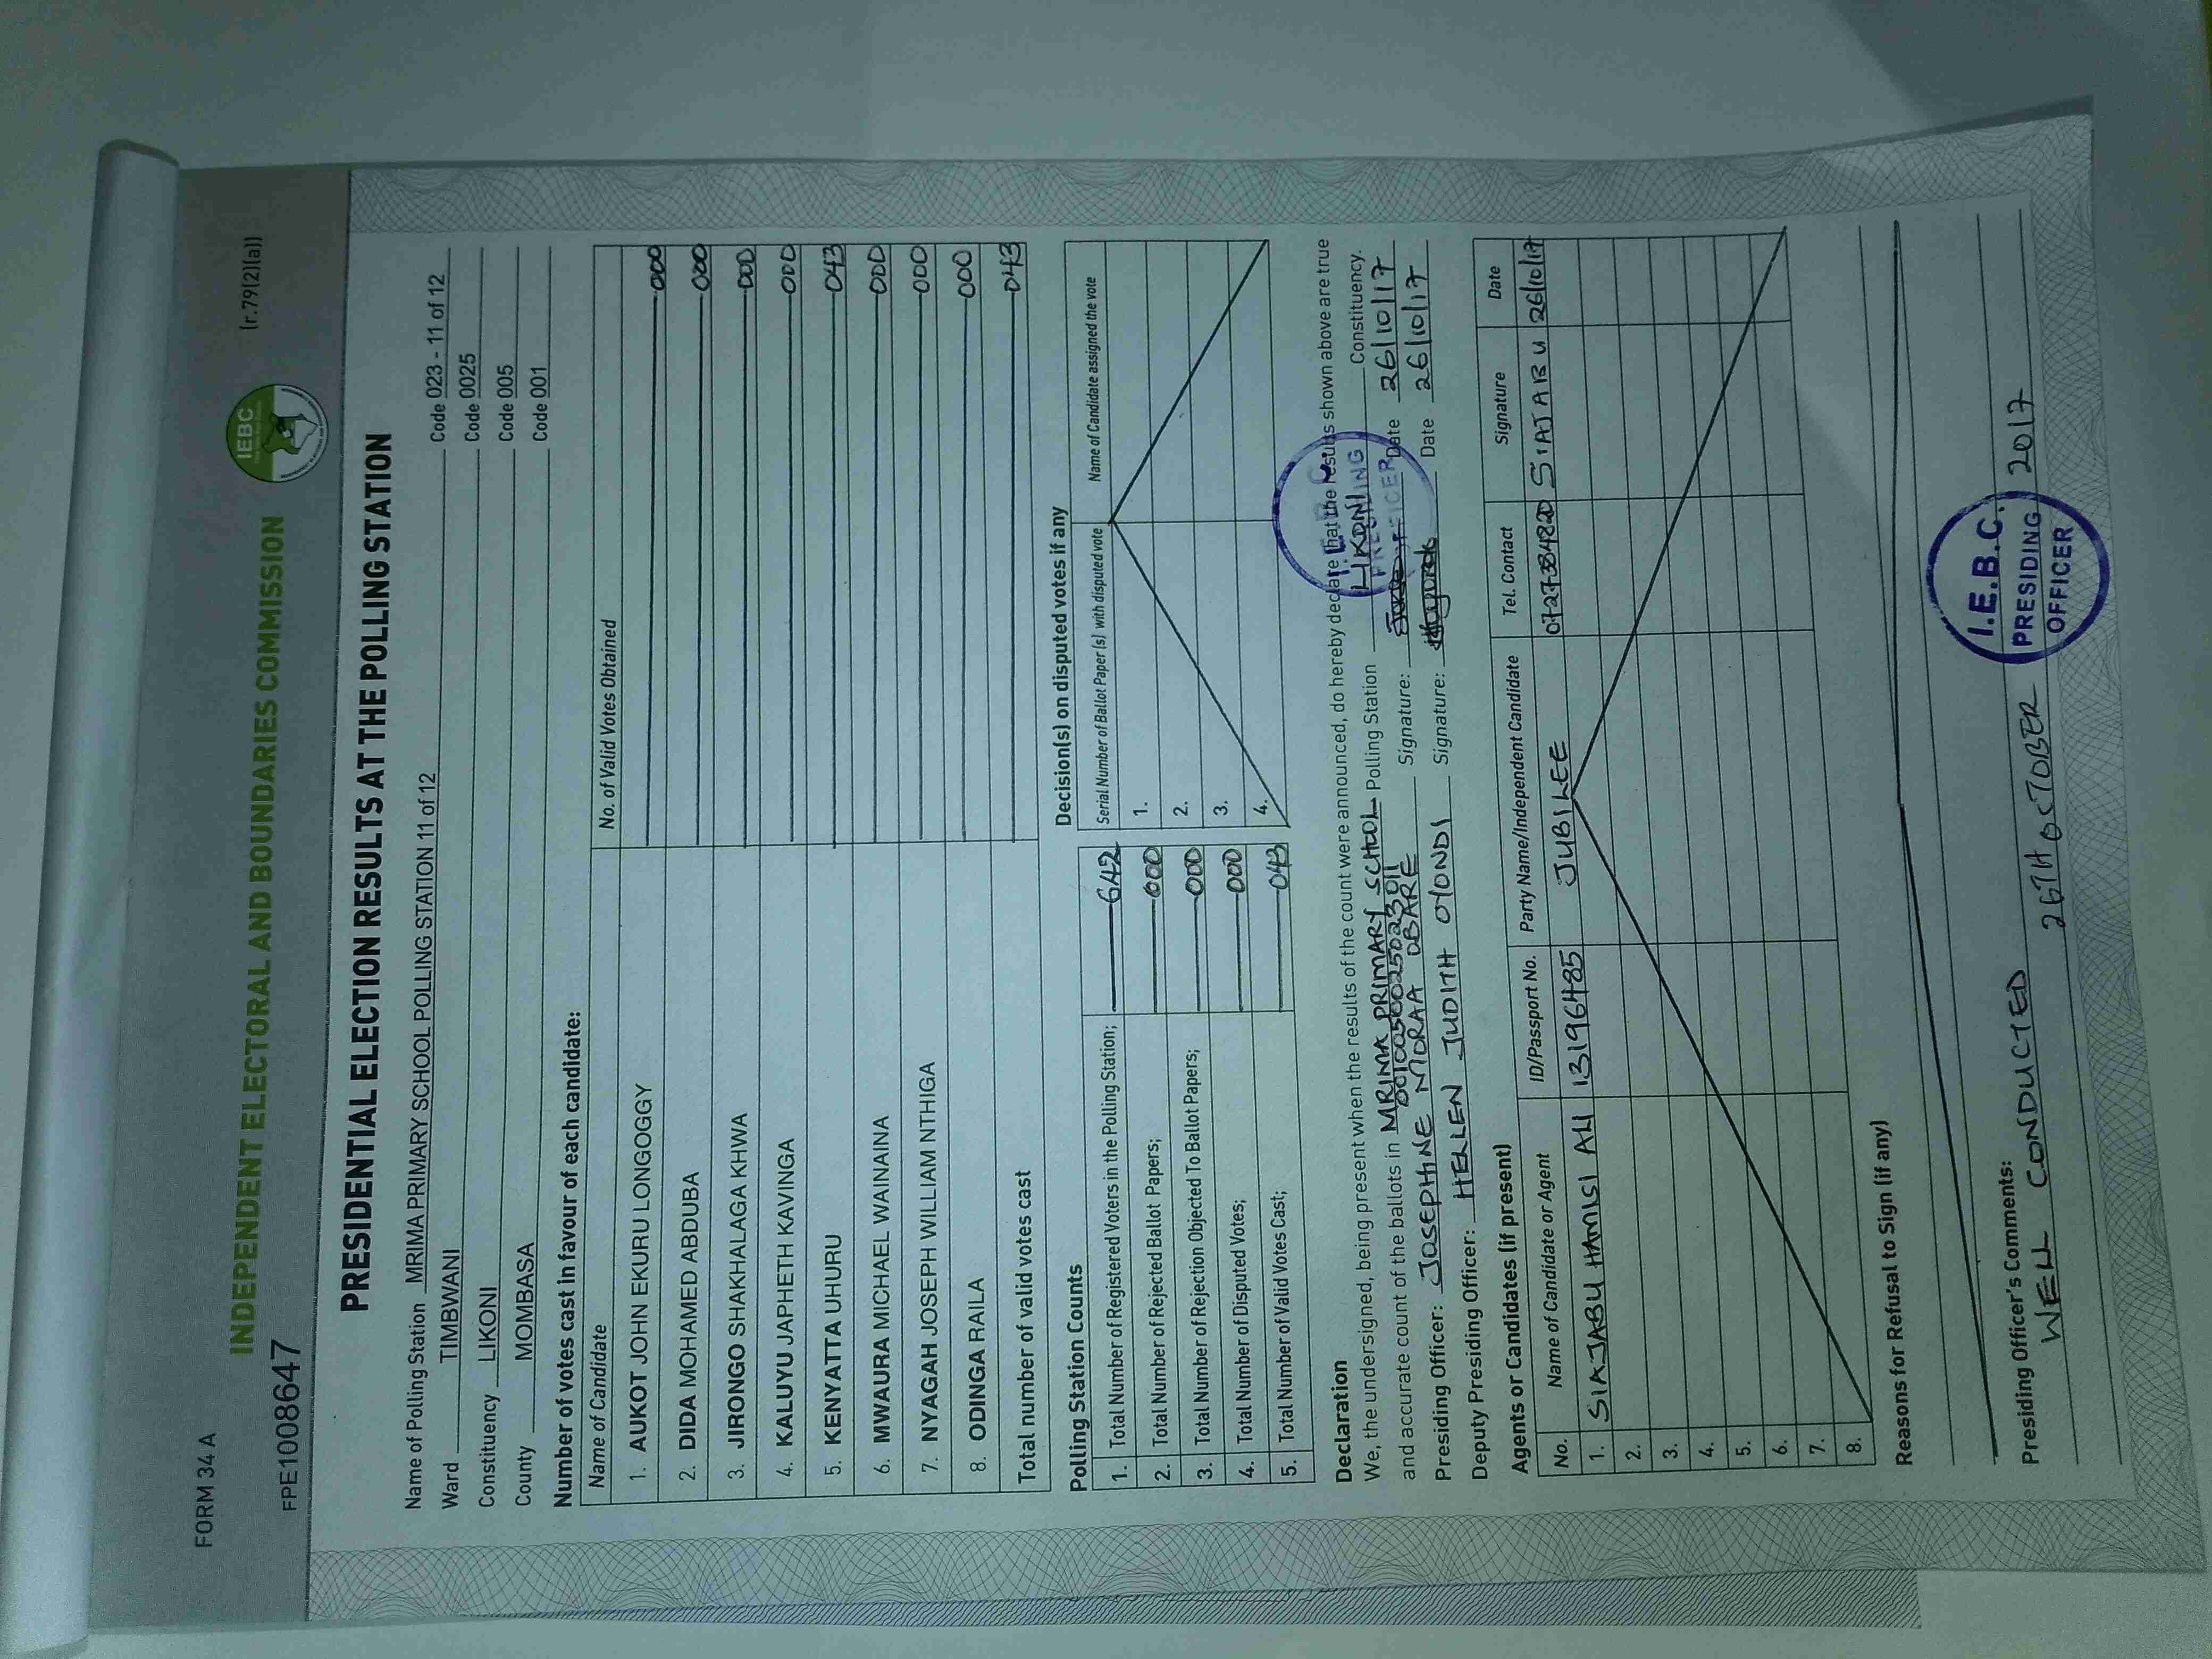 FORM 34 A
(r.79(2)(a))
IEBC
INDEPENDENT ELECTORAL AND BOUNDARIES COMMISSION
FPE1008647
PRESIDENTIAL ELECTION RESULTS AT THE POLLING STATION
Name of Polling Station MRIMA PRIMARY SCHOOL POLLING STATION 11 of 12 Code 023 - 11 of 12
Ward TIMBWANI Code 0025
Constituency LIKONI Code 005
County MOMBASA Code 001
Number of votes cast in favour of each candidate:
Name of Candidate No. of Valid Votes Obtained
1. AUKOT JOHN EKURU LONGOGGY 000
2. DIDA MOHAMED ABDUBA 000
3. JIRONGO SHAKHALAGA KHWA 000
4. KALUYU JAPHETH KAVINGA 000
5. KENYATTA UHURU 043
6. MWAURA MICHAEL WAINAINA 000
7. NYAGAH JOSEPH WILLIAM NTHIGA 000
8. ODINGA RAILA 000
Total number of valid votes cast 043
Polling Station Counts
1. Total Number of Registered Voters in the Polling Station; 642
2. Total Number of Rejected Ballot Papers; 000
3. Total Number of Rejection Objected To Ballot Papers; 000
4. Total Number of Disputed Votes; 000
5. Total Number of Valid Votes Cast; 043
Decision(s) on disputed votes if any
Serial Number of Ballot Paper (s) with disputed vote Name of Candidate assigned the vote
1.
2.
3.
4.
Declaration
We, the undersigned, being present when the results of the count were announced, do hereby declare that the results shown above are true
and accurate count of the ballots in MRIMA PRIMARY SCHOOL Polling Station LIKONI Constituency.
001005002502311
Presiding Officer: JOSEPHINE MORAA OBARE Signature: Date 26/10/17
Deputy Presiding Officer: HELLEN JUDITH OYONDI Signature: Date 26/10/17
I.E.B.C.
PRESIDING
OFFICER
Agents or Candidates (if present)
No. Name of Candidate or Agent ID/Passport No. Party Name/Independent Candidate Tel. Contact Signature Date
1. SIAJABU HAMISI ALI 13196485 JUBILEE SIAJABU 26/10/17
2.
3.
4.
5.
6.
7.
8.
Reasons for Refusal to Sign (if any)
Presiding Officer's Comments:
WELL CONDUCTED 26TH OCTOBER 2017
I.E.B.C.
PRESIDING
OFFICER